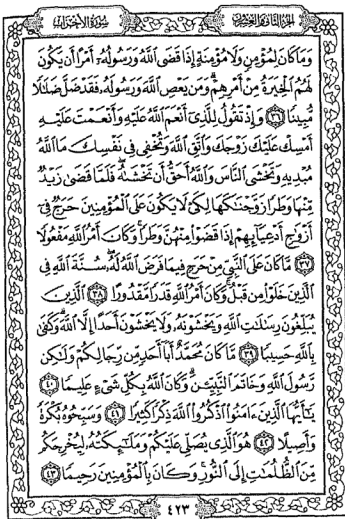 الجزء الثاني والعشرون سورة الأحزاب
وَمَا كَانَ لِمُؤْمِنٍ وَلَا مُؤْمِنَةٍ إِذَا قَضَى اللَّهُ وَرَسُولُهُ أَمْرًا أَن يَكُونَ
لَهُمُ الْخِيَرَةُ مِنْ أَمْرِهِمْ وَمَن يَعْصِ اللَّهَ وَرَسُولَهُ فَقَدْ ضَلَّ ضَلَالًا
مُّبِينًا ٣٦ وَإِذْ تَقُولُ لِلَّذِي أَنْعَمَ اللَّهُ عَلَيْهِ وَأَنْعَمْتَ عَلَيْهِ
أَمْسِكْ عَلَيْكَ زَوْجَكَ وَاتَّقِ اللَّهَ وَتُخْفِي فِي نَفْسِكَ مَا اللَّهُ
مُبْدِيهِ وَتَخْشَى النَّاسَ وَاللَّهُ أَحَقُّ أَن تَخْشَاهُ فَلَمَّا قَضَى زَيْدٌ
مِّنْهَا وَطَرًا زَوَّجْنَاكَهَا لِكَيْ لَا يَكُونَ عَلَى الْمُؤْمِنِينَ حَرَجٌ فِي
أَزْوَاجِ أَدْعِيَائِهِمْ إِذَا قَضَوْا مِنْهُنَّ وَطَرًا وَكَانَ أَمْرُ اللَّهِ مَفْعُولًا
٣٧ مَّا كَانَ عَلَى النَّبِيِّ مِنْ حَرَجٍ فِيمَا فَرَضَ اللَّهُ لَهُ سُنَّةَ اللَّهِ فِي
الَّذِينَ خَلَوْا مِن قَبْلُ وَكَانَ أَمْرُ اللَّهِ قَدَرًا مَّقْدُورًا ٣٨ الَّذِينَ
يُبَلِّغُونَ رِسَالَاتِ اللَّهِ وَيَخْشَوْنَهُ وَلَا يَخْشَوْنَ أَحَدًا إِلَّا اللَّهَ وَكَفَى
بِاللَّهِ حَسِيبًا ٣٩ مَّا كَانَ مُحَمَّدٌ أَبَا أَحَدٍ مِّن رِّجَالِكُمْ وَلَٰكِن
رَّسُولَ اللَّهِ وَخَاتَمَ النَّبِيِّينَ وَكَانَ اللَّهُ بِكُلِّ شَيْءٍ عَلِيمًا ٤٠
يَا أَيُّهَا الَّذِينَ آمَنُوا اذْكُرُوا اللَّهَ ذِكْرًا كَثِيرًا ٤١ وَسَبِّحُوهُ بُكْرَةً
وَأَصِيلًا ٤٢ هُوَ الَّذِي يُصَلِّي عَلَيْكُمْ وَمَلَائِكَتُهُ لِيُخْرِجَكُم
مِّنَ الظُّلُمَاتِ إِلَى النُّورِ وَكَانَ بِالْمُؤْمِنِينَ رَحِيمًا ٤٣
٤٢٣